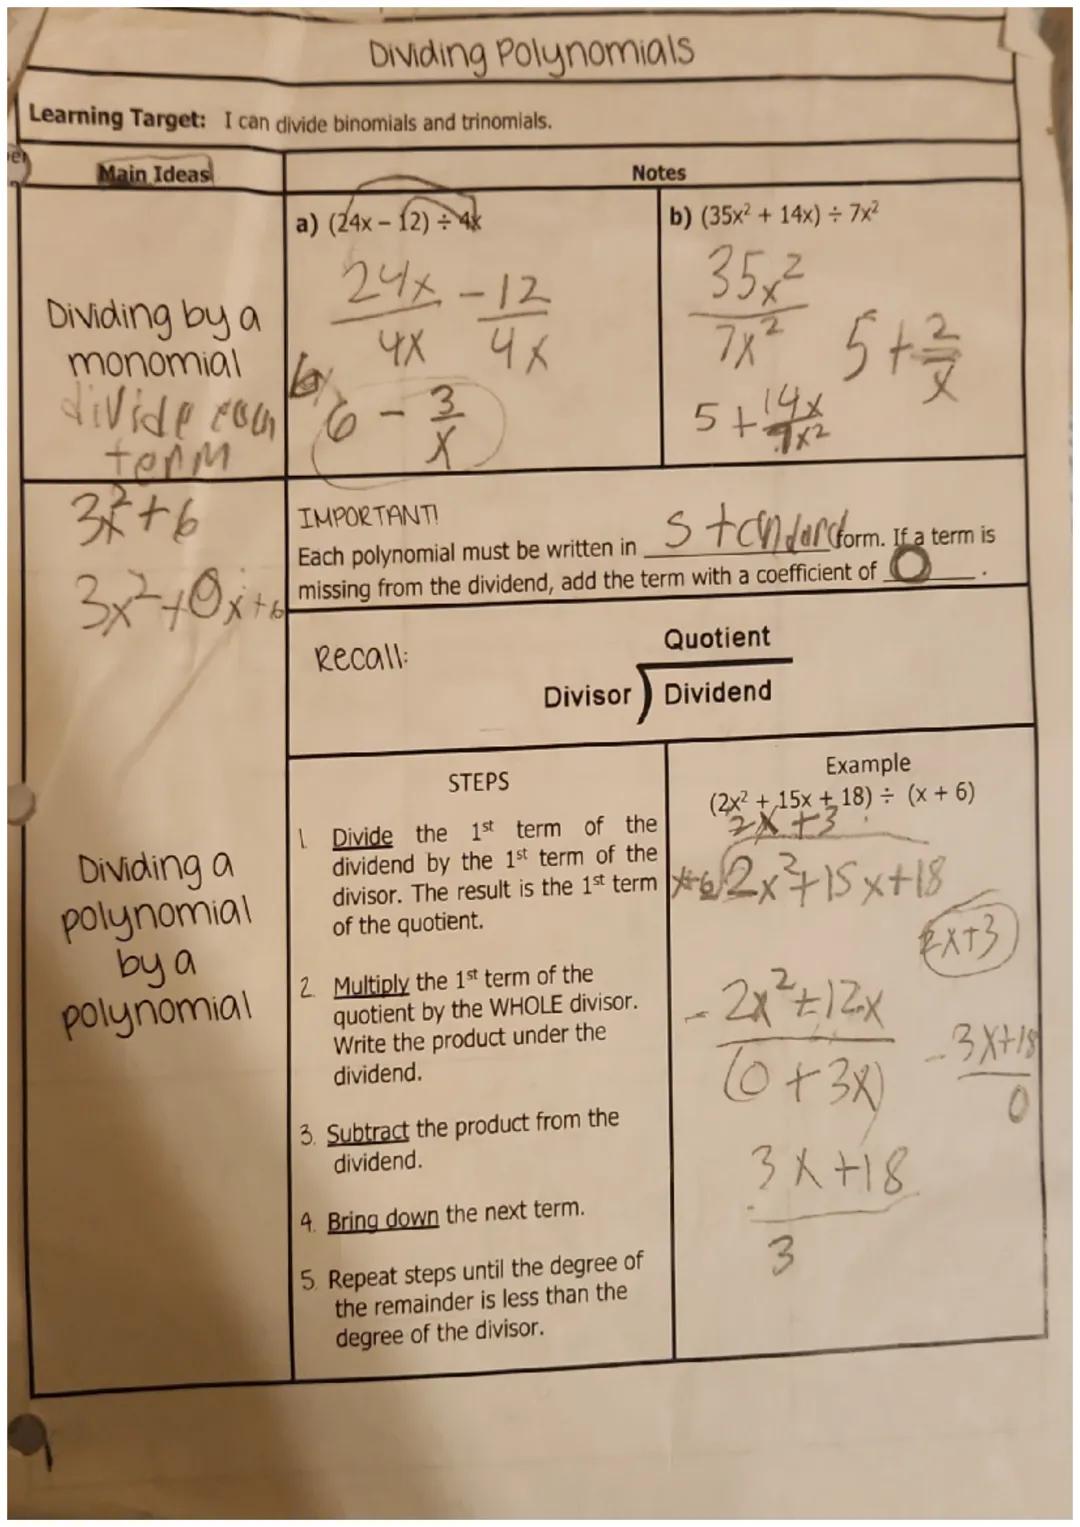 Dividing Polynomials
Learning Target: I can divide binomials and trinomials.
Main Ideas
Notes
Dividing by a
monomial
divide each
term
a) (24x – 12) ÷ 4x
24x - 12
4x 4x
6 - 3
x
b) (35x² + 14x) ÷ 7x²
35x²
7x²
5 + 2
x
5 + 14x
7x²
3x²+6
3x²+0x+6
IMPORTANT!
Each polynomial must be written in standard form. If a term is
missing from the dividend, add the term with a coefficient of 0.
Recall:
Quotient
Divisor Dividend
Dividing a
polynomial
by a
polynomial
STEPS
1. Divide the 1st term of the
dividend by the 1st term of the
divisor. The result is the 1st term
of the quotient.
2. Multiply the 1st term of the
quotient by the WHOLE divisor.
Write the product under the
dividend.
3. Subtract the product from the
dividend.
4. Bring down the next term.
5. Repeat steps until the degree of
the remainder is less than the
degree of the divisor.
Example
(2x² + 15x + 18) ÷ (x + 6)
2x+3
x+6 2x²+15x+18
2x+3
- 2x²+12x
(0+3x)
- 3x+18
0
3x+18
3